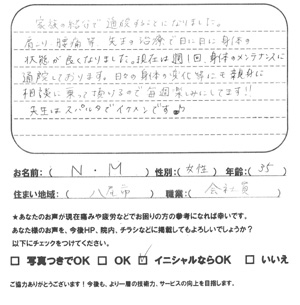 家族の紹介で通院することになりました。
肩こり、腰痛等 先生の治療で日に日に身体の
状態が良くなりました。現在は週1回、身体のメンテナンスに
通院しております。日々の身体の変化等にも親身に
相談に乗って頂けるので毎週楽しみにしてます!!
先生はスパルタでイケメンです♪
お名前:( N・M ) 性別:(女性) 年齢:(35)
住まい地域:( 八尾市 ) 職業:( 会社員 )
★あなたのお声が現在痛みや疲労などでお困りの方の参考になれば幸いです。
あなた様のお声を、今後HP、院内、チラシなどに掲載してもよろしいでしょうか?
以下にチェックをつけてください。
□ 写真つきでOK □ OK ☑ イニシャルならOK □ いいえ
ご協力ありがとうございます!今後も、より一層の技術力、サービスの向上を目指します。